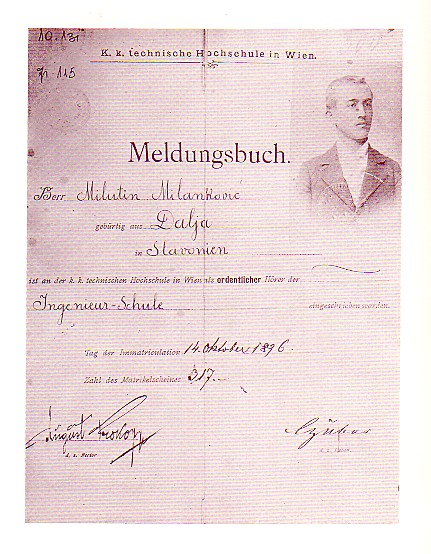 10.131
K. k. technische Hochschule in Wien.
115
Meldungsbuch.
Herr Milutin Milanković
gebürtig aus Dalja
in Slavonien
ist an der k. k. technischen Hochschule in Wien als ordentlicher Hörer der
Ingenieur-Schule eingeschrieben worden.
Tag der Immatriculation 14. Oktober 1896.
Zahl des Matrikelscheines 317.—
August
d. z. Rector
Czuber
d. z. Decan.